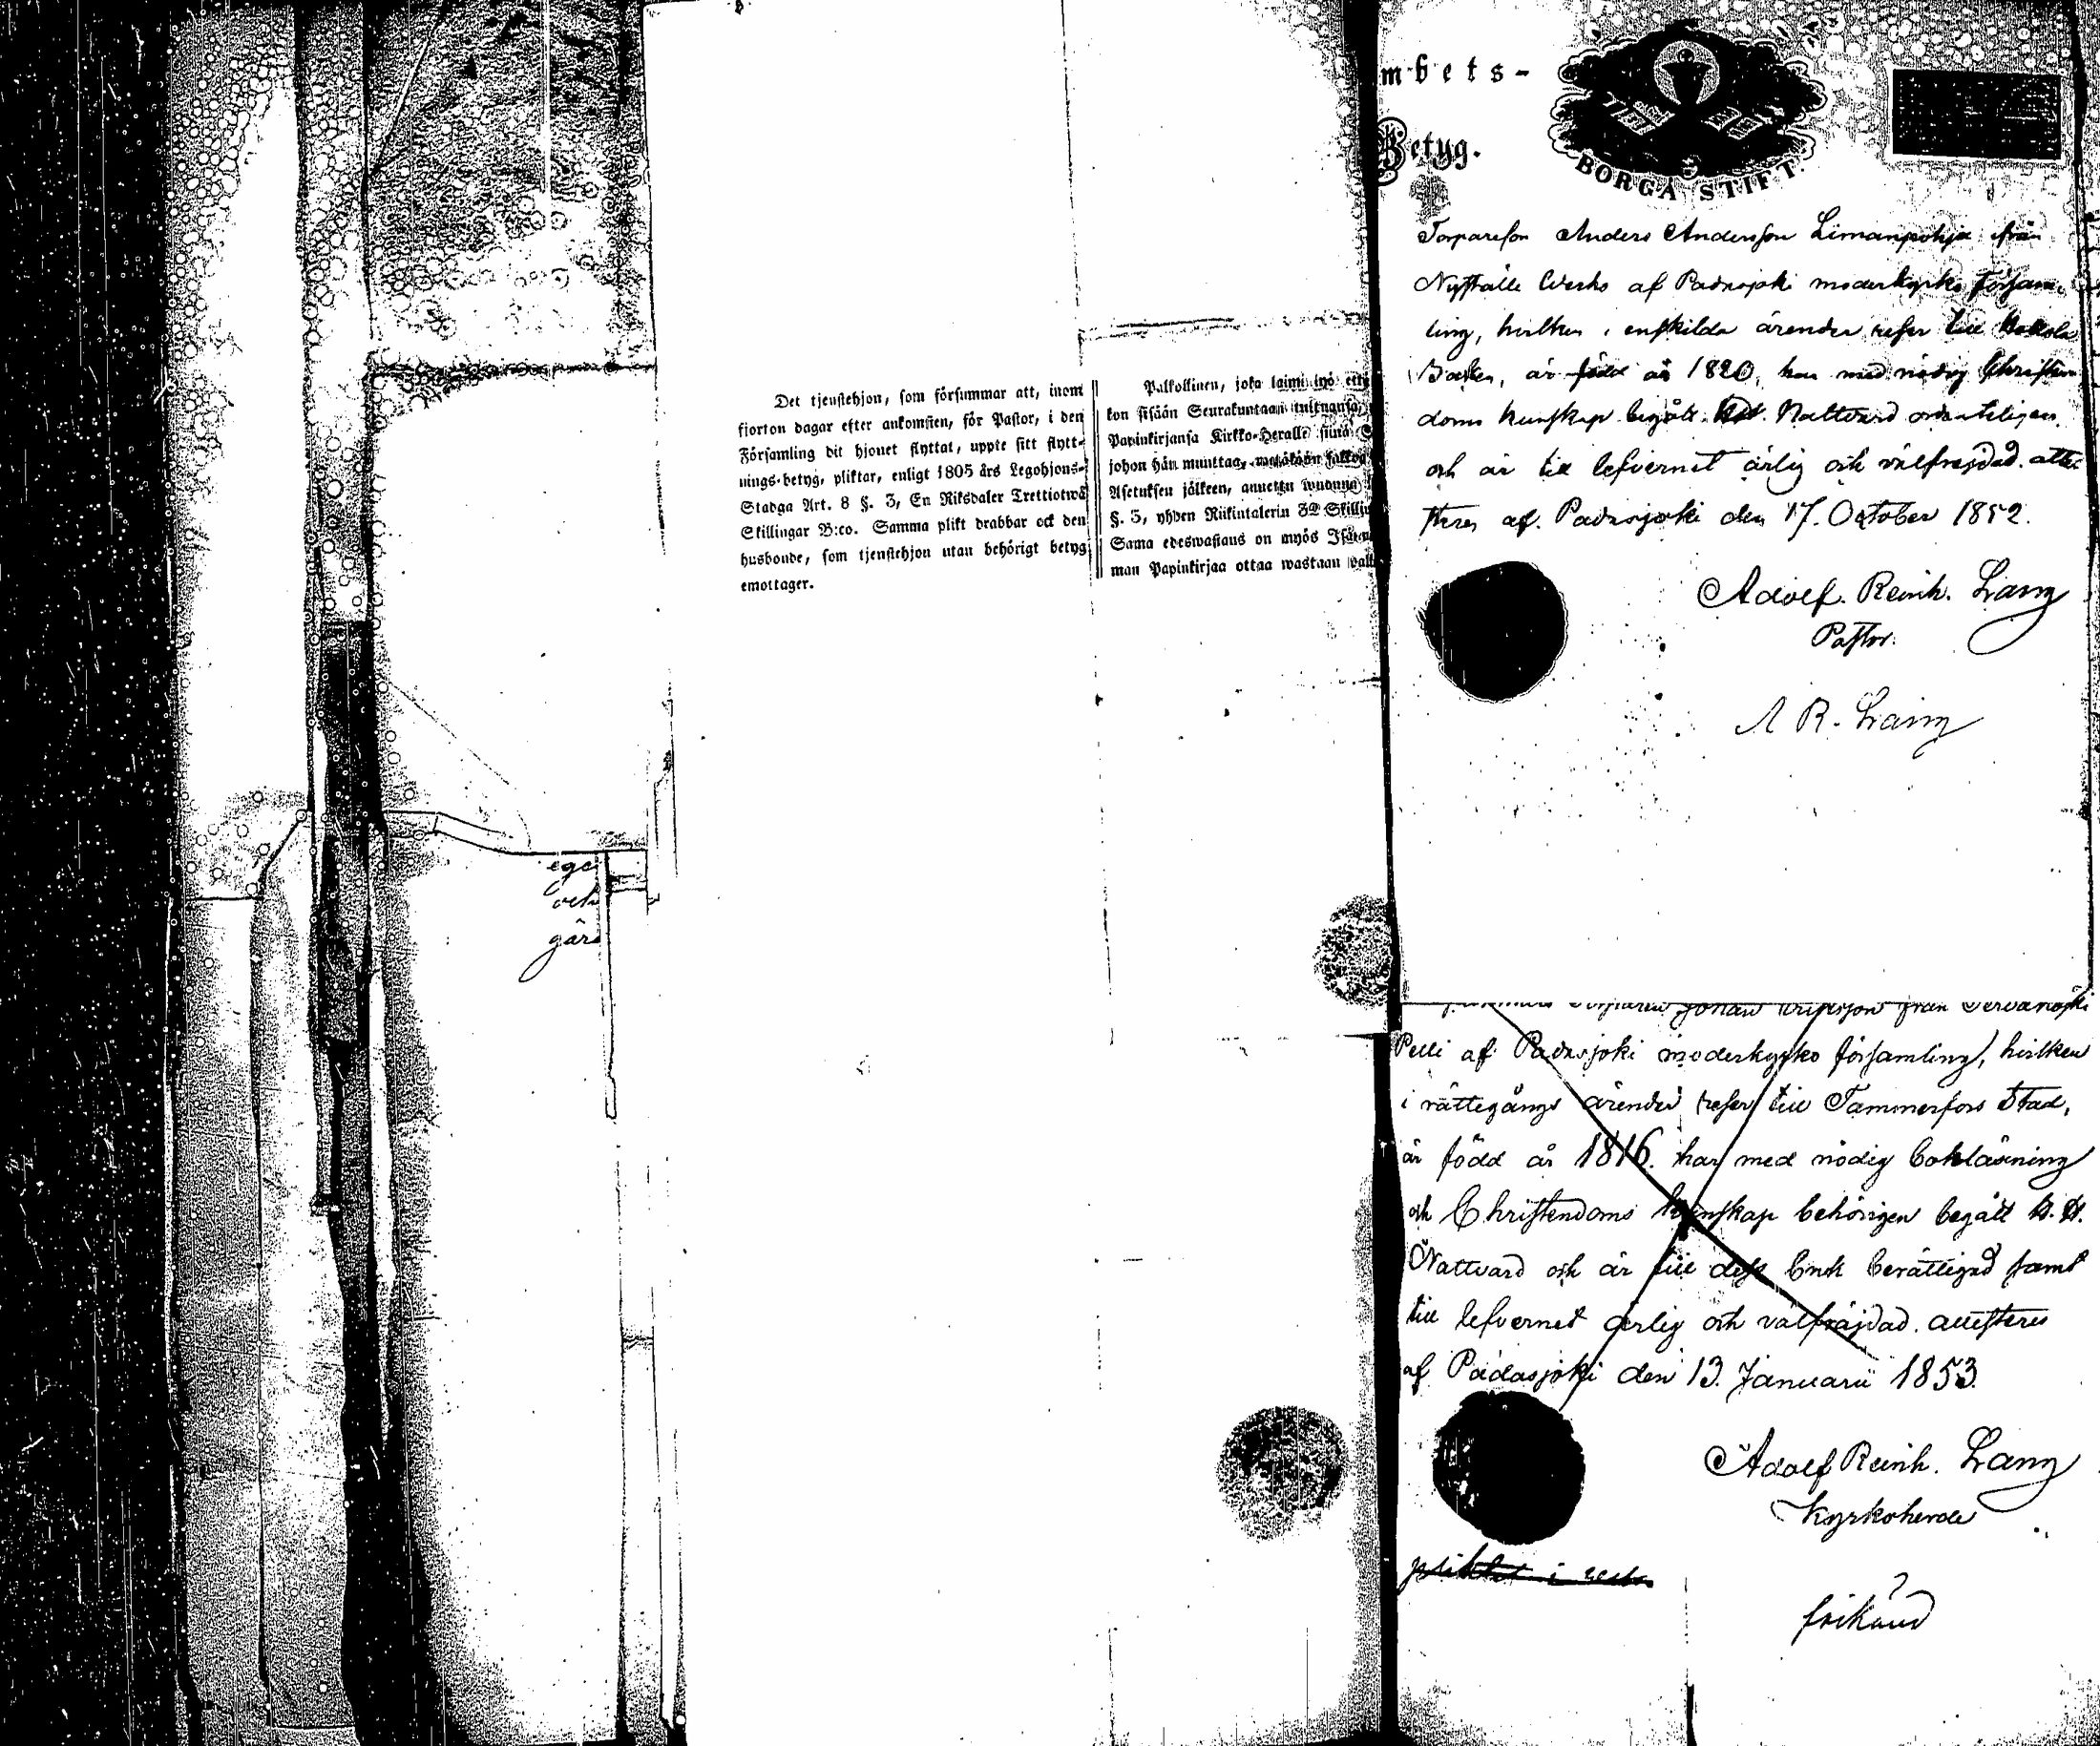 ege
och
går
Det tjenstehjon, som försummar att, inom
fjorton dagar efter ankomsten, för Pastor, i den
Församling dit hjonet flyttat, uppte sitt flytt-
nings-betyg, pliktar, enligt 1805 års Legohjons-
Stadga Art. 8 §. 3, En Riksdaler Trettiotwå
Skillingar B:co. Samma plikt drabbar ock den
husbonde, som tjenstehjon utan behörigt betyg
emottager.
Palkollinen, joka laimi
kon sisään Seurakuntaan
Papinkirjansa Kirkko-Heralle
johon hän munttaa,
Asetuksen jälkeen, annettu
§. 3, yhden Riikintalerin 32
Sama edeswastaus on myös
man Papinkirjaa ottaa wastaan
mbets-
Betyg.
BORGÅ STIFT.
Torpareson Anders Andersson från
af Padasjoki moderkyrko försam-
ling, hvilken i enskilda ärender reser till
är född år 1820, har med nödig Christen
doms kunskap begått Nattvard ordenteligen
och är till lefvernet ärlig och välfrejdad. atte
steres af. Padasjoki den 17. October 1852.
Adolf. Reinh. Lang
Pastor.
A R. Lang
Johan Eriksson från
Pelli af Padasjoki moderkyrko församling, hvilken
i rättegångs ärender reser till Tammerfors Stad,
är född år 1816. har med nödig bokläsning
och Christendoms kunskap behörigen begått H. H.
Nattvard och är till dess bruk berättigad samt
till lefvernet ärlig och välfräjdad. attesteres
af Padasjoki den 13. Januarii 1853.
Adolf Reinh. Lang
Kyrkoherde